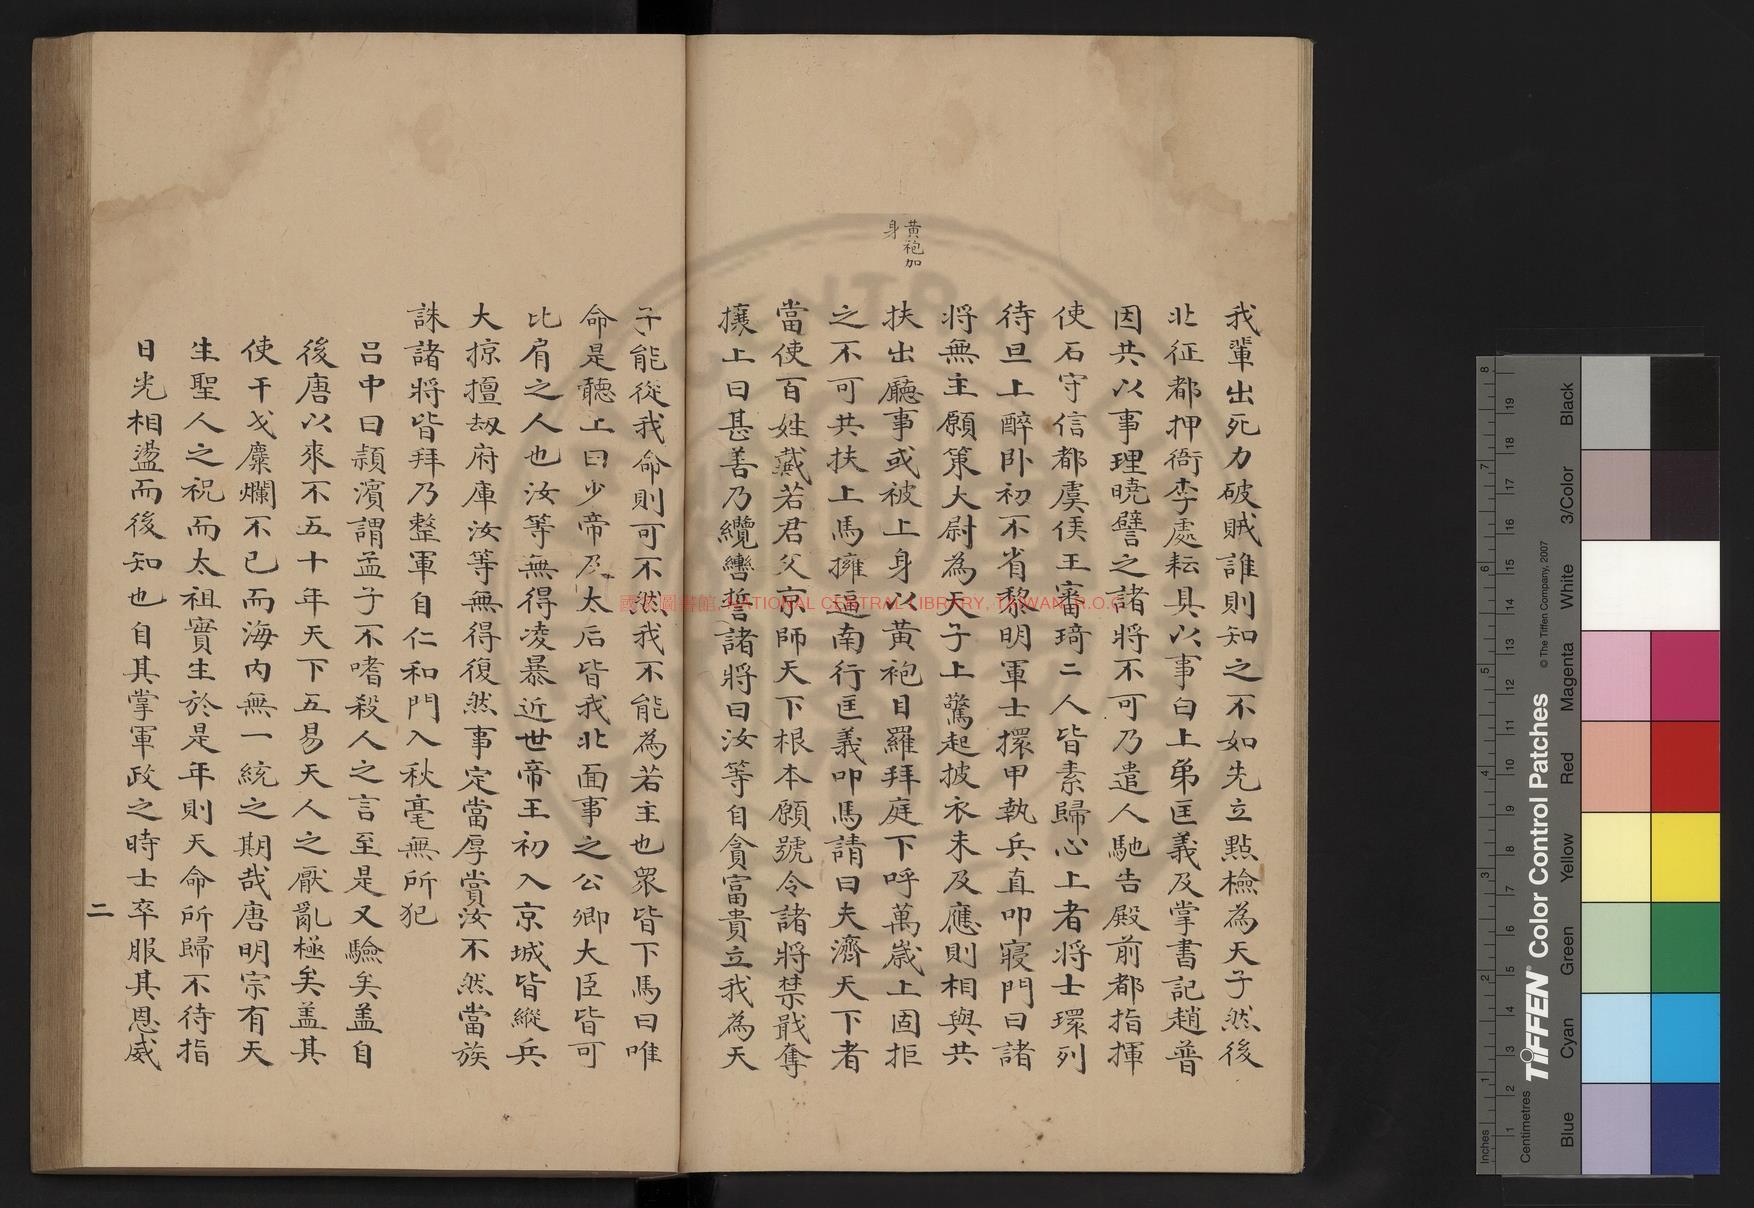 黃袍加
身
我輩出死力破賊誰則知之不如先立點檢為天子然後
北征都押衙李處耘具以事白上弟匡義及掌書記趙普
因共以事理曉譬之諸將不可乃遣人馳告殿前都指揮
使石守信都虞候王審琦二人皆素歸心上者將士環列
待旦上醉卧初不省黎明軍士擐甲執兵直叩寢門曰諸
將無主願策大尉為天子上驚起披衣未及應則相與共
扶出廳事或被上身以黃袍且羅拜庭下呼萬歲上固拒
之不可共扶上馬擁逼南行匡義叩馬請曰夫濟天下者
當使百姓戴若君父京師天下根本願號令諸將禁戢奪
攘上曰甚善乃纜轡誓諸將曰汝等自貪富貴立我為天
子能從我命則可不然我不能為若主也眾皆下馬曰唯
命是聽上曰少帝及太后皆我北面事之公卿大臣皆可
比肩之人也汝等無得凌暴近世帝王初入京城皆縱兵
大掠擅劫府庫汝等無得復然事定當厚賞汝不然當族
誅諸將皆拜乃整軍自仁和門入秋毫無所犯
呂中曰潁濱謂孟子不嗜殺人之言至是又驗矣盖自
後唐以來不五十年天下五易天人之厭亂極矣盖其
使干戈糜爛不已而海內無一統之期哉唐明宗有天
生聖人之祝而太祖實生於是年則天命所歸不待指
日光相盪而後知也自其掌軍政之時士卒服其恩威
二
國家圖書館, NATIONAL CENTRAL LIBRARY, TAIWAN, R.O.C
Inches
Centimetres
TIFFEN Color Control Patches
© The Tiffen Company, 2007
Blue
Cyan
Green
Yellow
Red
Magenta
White
3/Color
Black